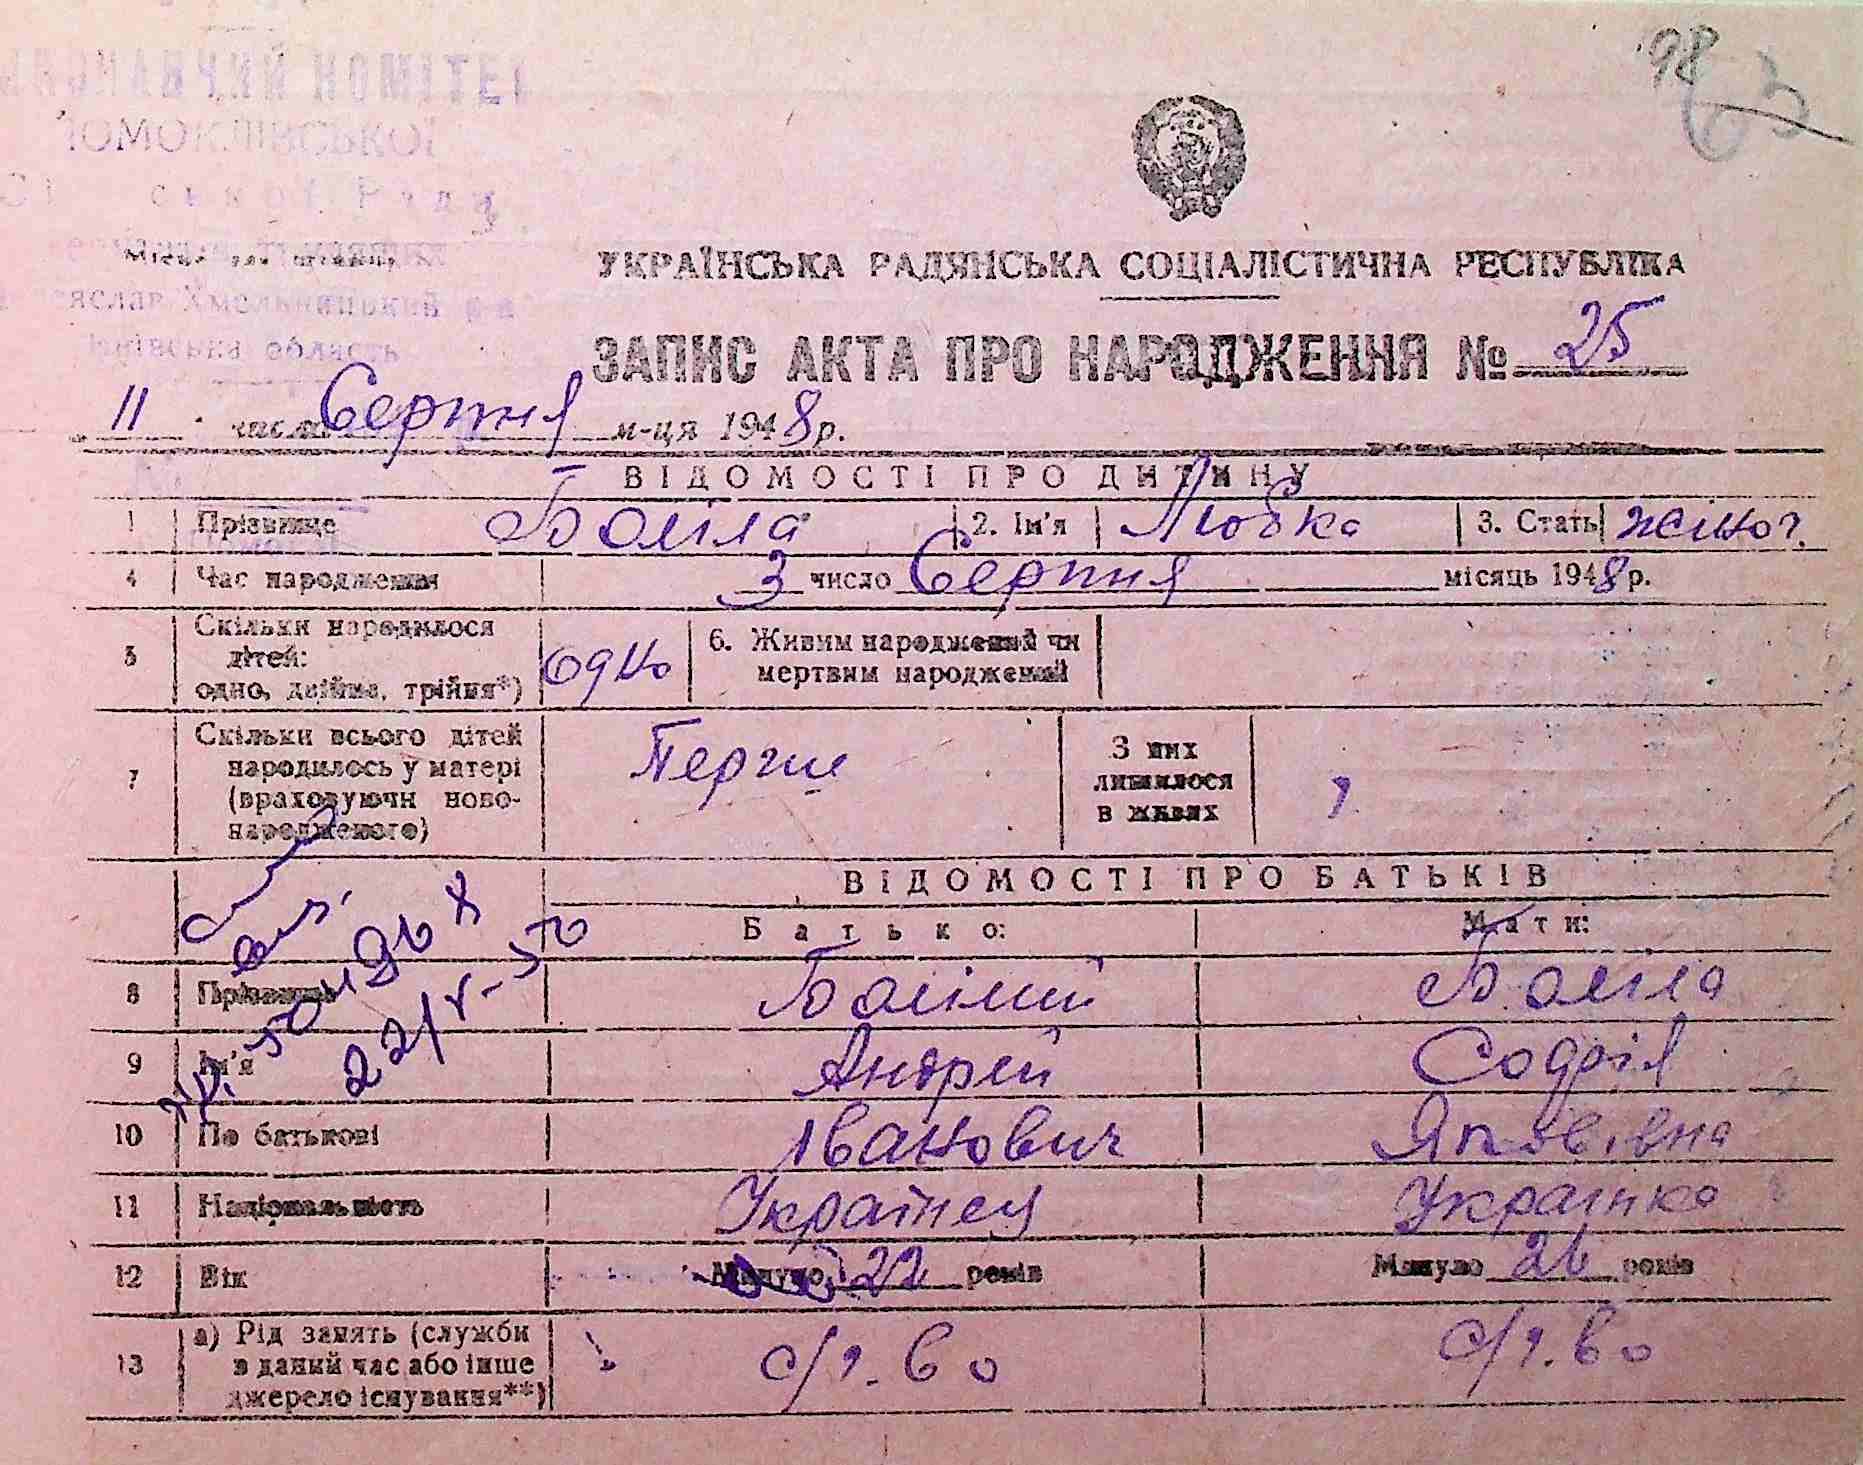 98
63
ВИКОНАВЧИЙ КОМІТЕТ
ПОМОКЛІВСЬКОЇ
Сільської Ради
Переяслав Хмельницький р-н
Київська область
УКРАЇНСЬКА РАДЯНСЬКА СОЦІАЛІСТИЧНА РЕСПУБЛІКА
ЗАПИС АКТА ПРО НАРОДЖЕННЯ № 25
11 число Серпня м-ця 1948 р.
ВІДОМОСТІ ПРО ДИТИНУ
1 Прізвище 2. Ім'я Любка 3. Стать жіноч.
4 Час народження 3 число Серпня місяць 1948 р.
5 Скільки народилося дітей: одно, двійня, трійня*) одно 6. Живим народжений чи мертвим народжений
7 Скільки всього дітей народилось у матері (враховуючи новонародженого) Перше З них лишилося в живих
ВІДОМОСТІ ПРО БАТЬКІВ
Батько: Мати:
8 Прізвище
9 Ім'я Андрей Софія
10 По батькові Іванович Яковівна
11 Національність Українец Українка
12 Вік Минуло 22 років Минуло 26 років
13 а) Рід занять (служби в даний час або інше джерело існування**) с/г. во с/г. во